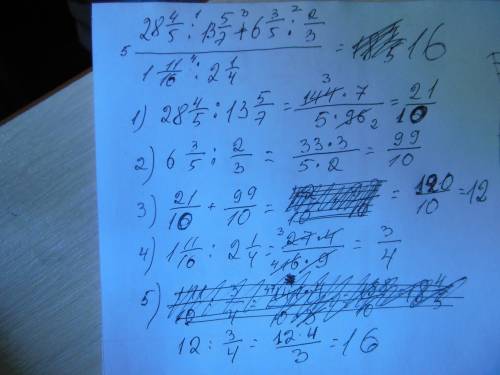 28 4/5 : 13 5/7 + 6 3/5 : 2/3
1 11/16 : 2 1/4
= 16
1) 28 4/5 : 13 5/7 = 144 · 7 / 5 · 96 = 21/10
2) 6 3/5 : 2/3 = 33 · 3 / 5 · 2 = 99/10
3) 21/10 + 99/10 = = 120/10 = 12
4) 1 11/16 : 2 1/4 = 27 · 4 / 16 · 9 = 3/4
5)
12 : 3/4 = 12 · 4 / 3 = 16